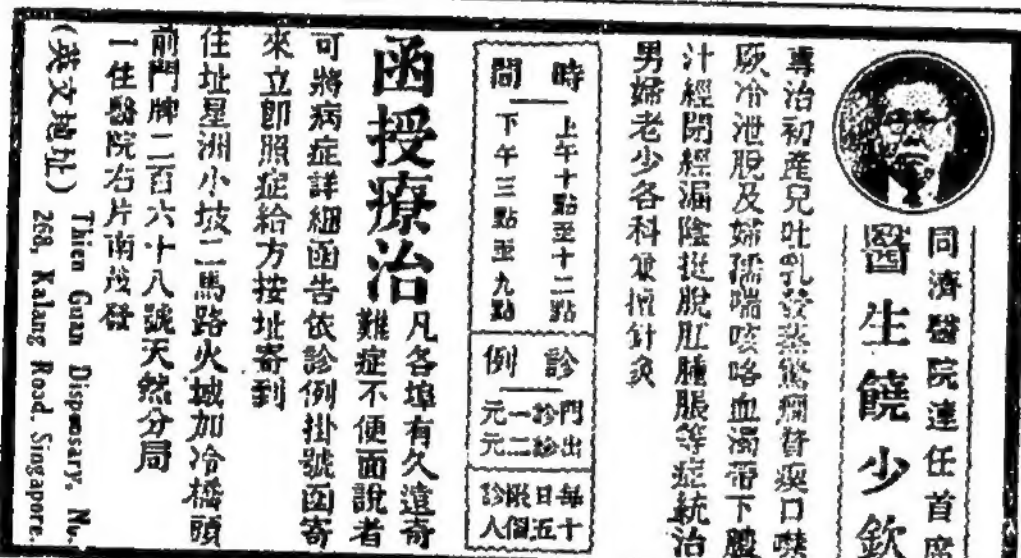 同濟醫院連任首席
醫生饒少欽
專治初產兒吐乳發蒸驚癇瘠瘦口噤
厥冷泄脫及婦孺喘咳咯血濁帶下
汁經閉經漏陰挺脫肛腫脹等症統治
男婦老少各科兼擅針灸
時間
上午十點至十二點
下午三點至九點
診例
門診一元
出診二元
每日限診
十五個人
函授療治
凡各埠有久遠奇
難症不便面說者
可將病症詳細函告依診例掛號函寄
來立卽照症給方按址寄到
住址星洲小坡二馬路火城加冷橋頭
前門牌二百六十八號天然分局
一住醫院右片南茂發
(英文地址)
Thien Guan Dispensary, No.
268, Kalang Road, Singapore.